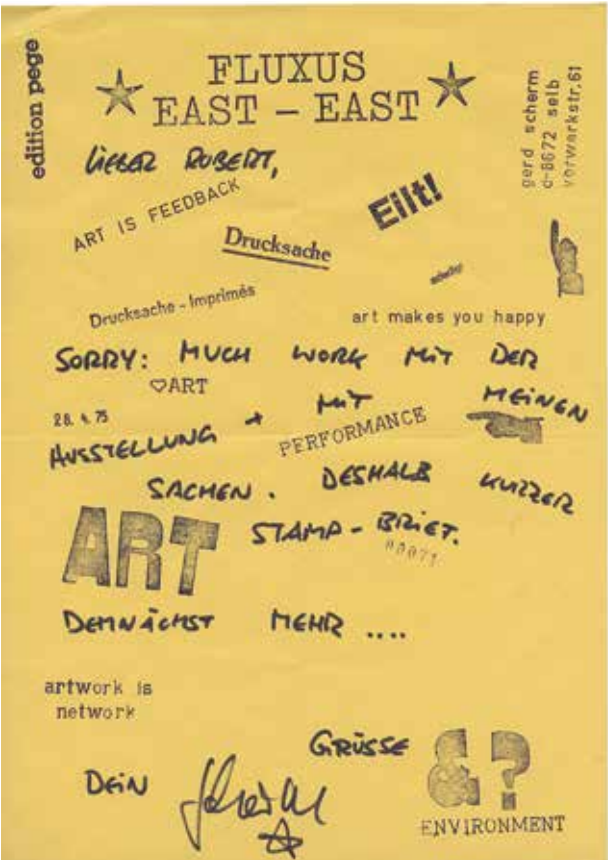 edition pege
FLUXUS
EAST – EAST
gerd scherm
d-8672 selb
vorwerkstr. 61
LIEBER ROBERT,
ART IS FEEDBACK
Eilt!
Drucksache
Drucksache - Imprimés
art makes you happy
SORRY: MUCH WORK MIT DER
♡ART
28. 4. 75
AUSSTELLUNG + MIT MEINEN
PERFORMANCE
SACHEN. DESHALB KURZER
ART
STAMP - BRIEF.
DEMNÄCHST MEHR ....
artwork is
network
GRÜSSE
DEIN
& ?
ENVIRONMENT